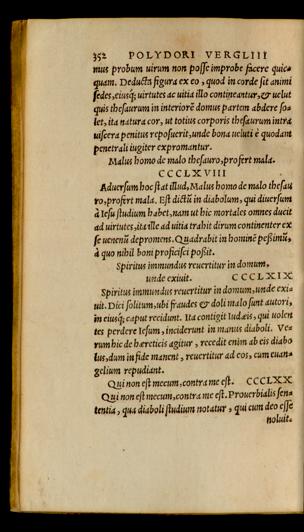 352 POLYDORI VERGLIII
mus probum uirum non posse improbe facere quic=
quam. Deducta figura ex eo, quod in corde sit animi
sedes, eiusq; uirtutes ac uitia illo contineantur, & uelut
quis thesaurum in interiorē domus partem abdere so=
let, ita natura cor, ut totius corporis thesaurum intra
uiscera penitus reposuerit, unde bona ueluti è quodam
penetrali iugiter expromantur.
Malus homo de malo thesauro, profert mala.
CCCLXVIII
Aduersum hoc stat illud, Malus homo de malo thesau
ro, profert mala. Est dictū in diabolum, qui diuersum
à Iesu studium habet, nam ut hic mortales omnes ducit
ad uirtutes, ita ille ad uitia trahit dirum continenter ex
se uenenū depromens. Quadrabit in hominē pessimū,
à quo nihil boni proficisci possit.
Spiritus immundus reuertitur in domum,
unde exiuit. CCCLXIX
Spiritus immundus reuertitur in domum, unde exi=
uit. Dici solitum, ubi fraudes & doli malo sunt autori,
in eiusq; caput recidunt. Ita contigit Iudæis, qui uolen
tes perdere Iesum, inciderunt in manus diaboli. Ve=
rum hic de hæreticis agitur, recedit enim ab eis diabo
lus, dum in fide manent, reuertitur ad eos, cum euan=
gelium repudiant.
Qui non est mecum, contra me est. CCCLXX
Qui non est mecum, contra me est. Prouerbialis sen=
tentia, qua diaboli studium notatur, qui cum deo esse
noluit.